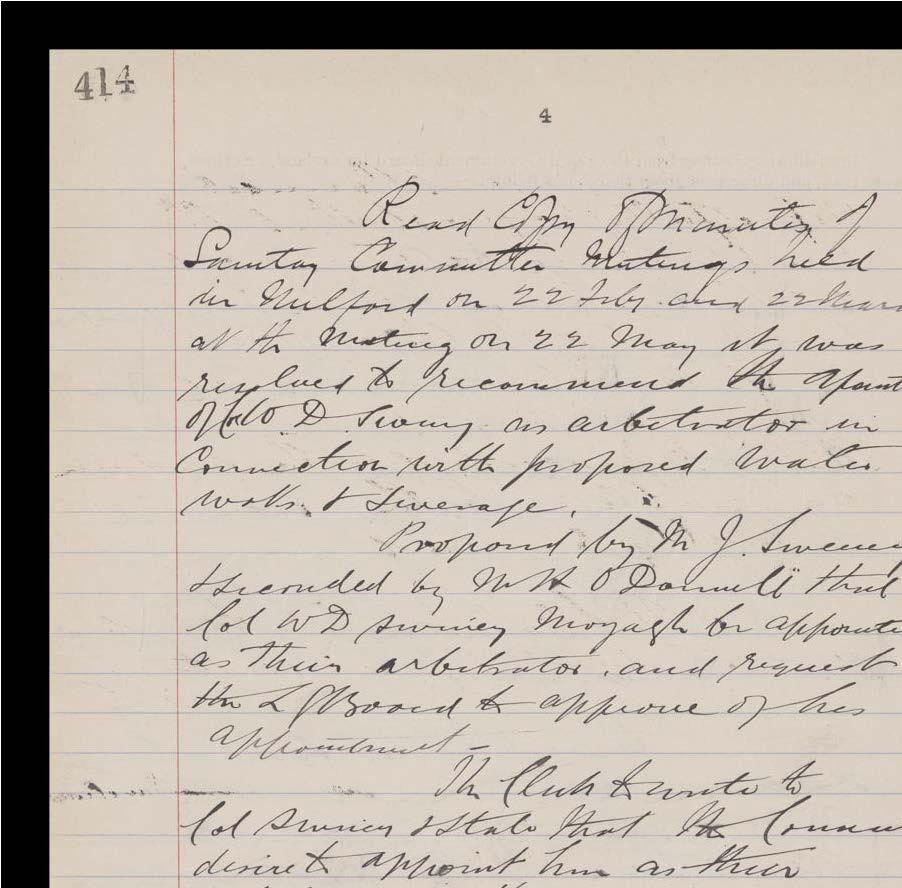 414
4
Read Copy of Minutes of
Sanitary Committee Meetings held
in Milford on 22 Feby and 22 Marc
at the Meeting on 22 May it was
resolved to recommend the apoint
of Col W. D Swiney as arbitrator in
Connection with proposed Water
works & Sewerage.
Proposed by Mr J. Sweeney
& seconded by Mr H O'Donnell that
Col WD Swiney Moyagh be appointe
as their arbitrator. and request
the L G Board to approve of his
appointment —
The Clerk to write to
Col Swiney & State that the Counc
desire to appoint him as their